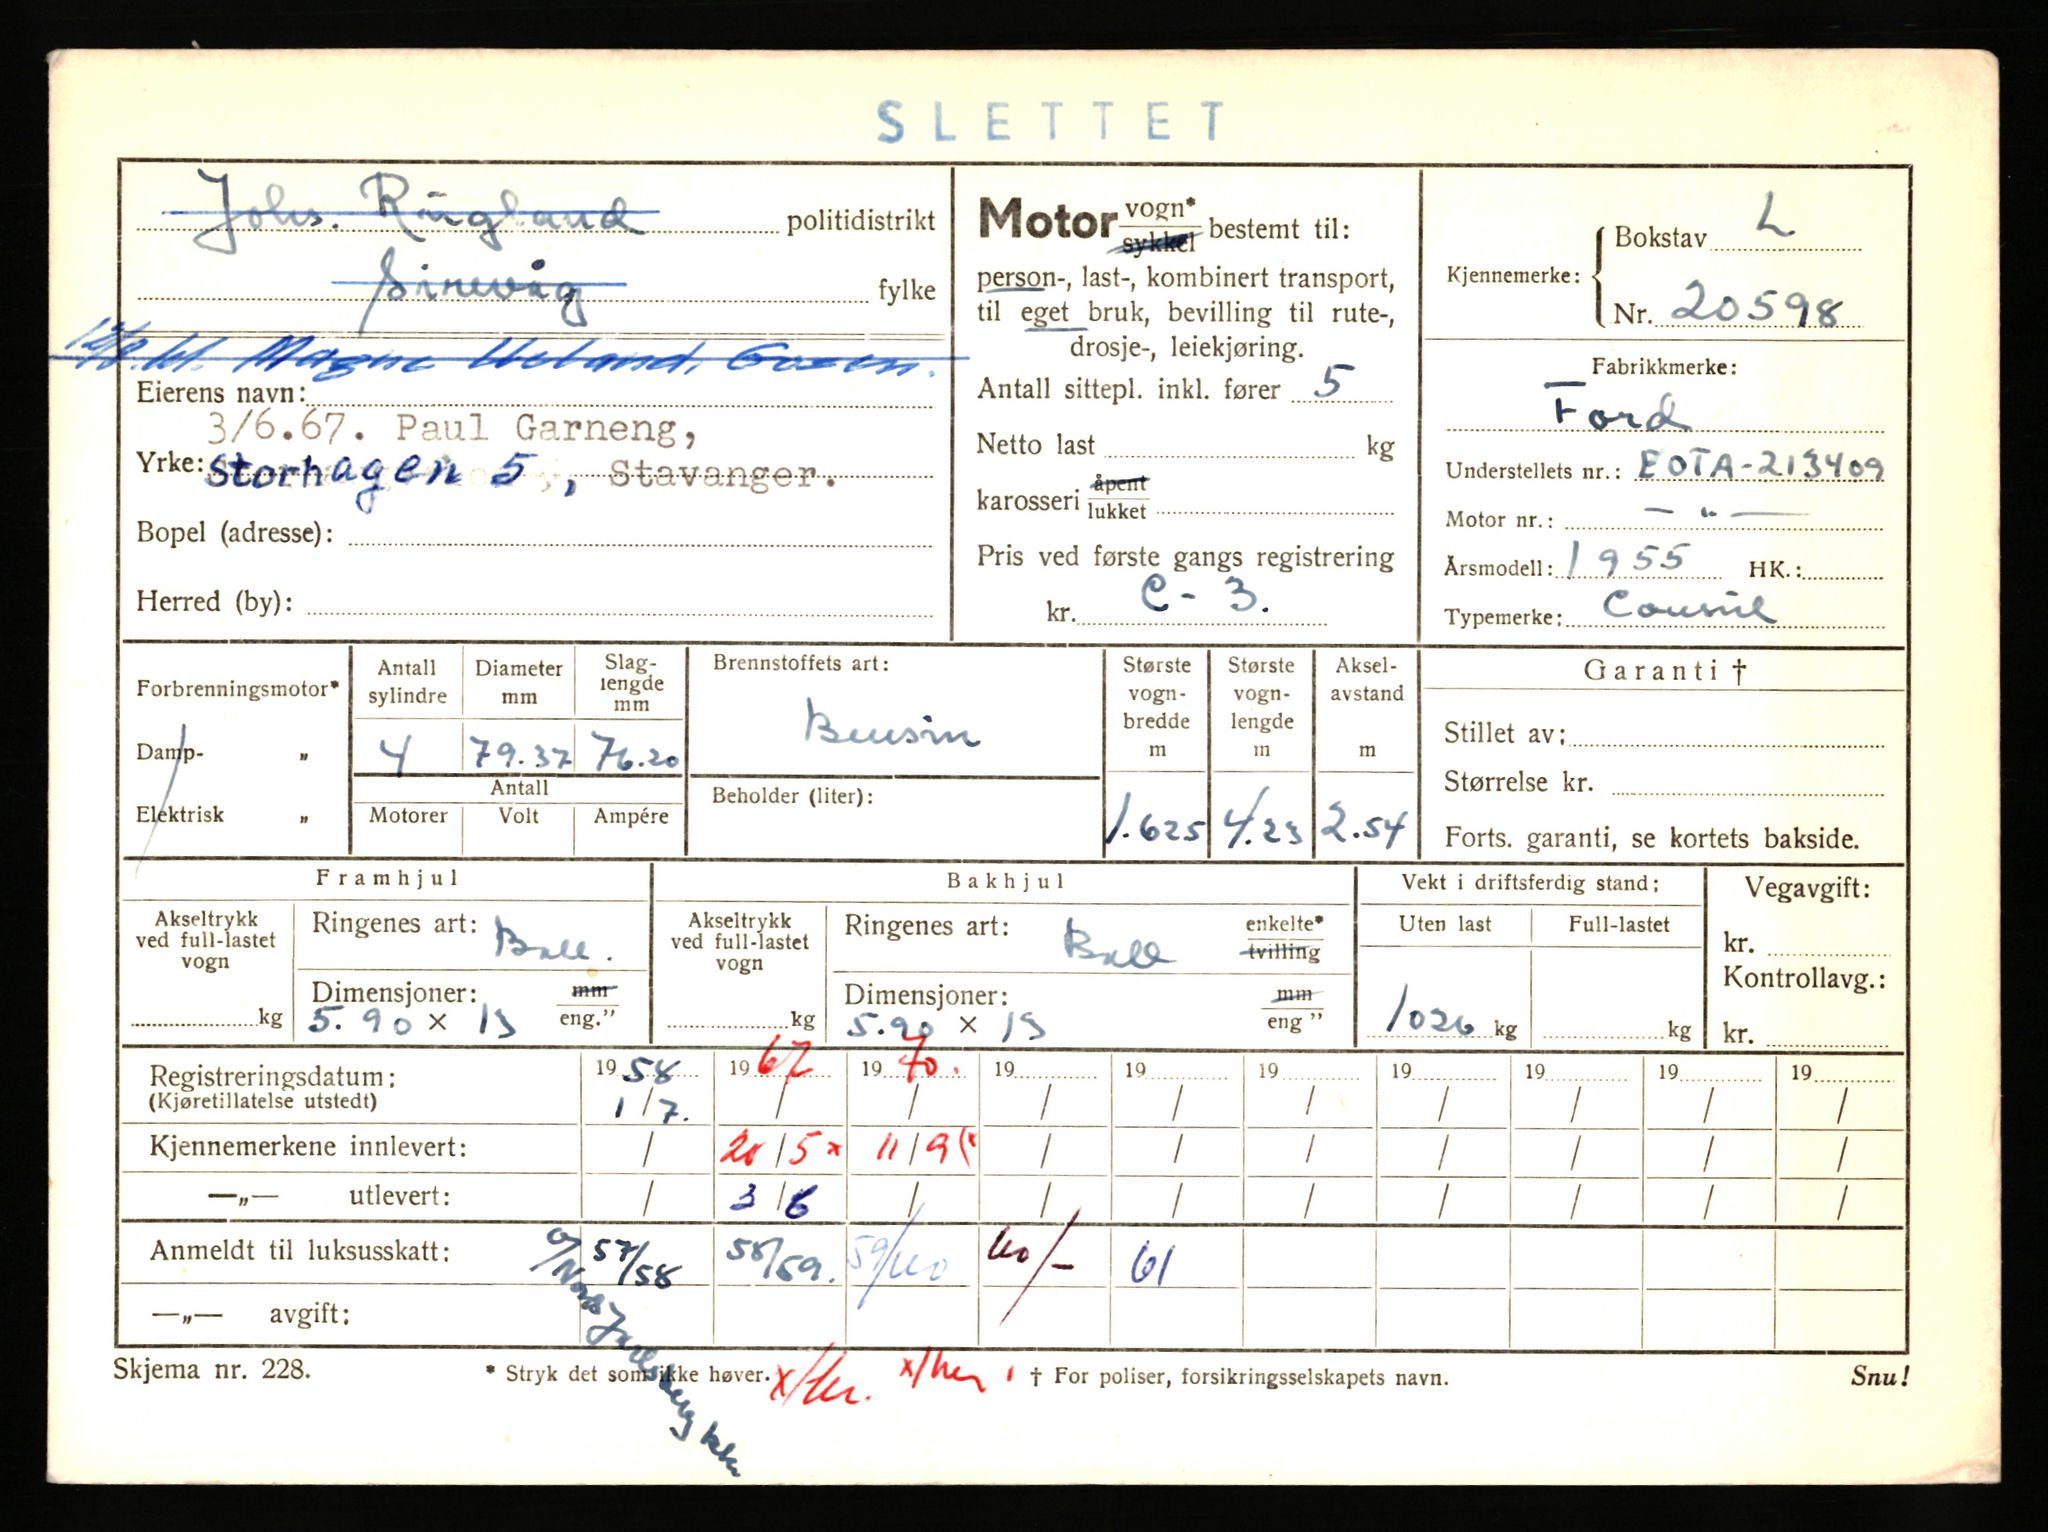 SLETTET
Johs. Ringland politidistrikt
Sirevåg fylke
Magne Ueland,
Eierens navn:
3/6.67. Paul Garneng,
Yrke: Storhagen 5, Stavanger.
Bopel (adresse):
Herred (by):
Motor vogn* sykkel bestemt til:
person-, last-, kombinert transport,
til eget bruk, bevilling til rute-,
drosje-, leiekjøring.
Antall sittepl. inkl. fører 5
Netto last kg
karosseri åpent lukket
Pris ved første gangs registrering
kr. C-3.
Kjennemerke: Bokstav L
Nr. 20598
Fabrikkmerke:
Ford
Understellets nr.: EOTA-213409
Motor nr.: — " —
Årsmodell: 1955 HK.:
Typemerke: Consul
Forbrenningsmotor*
Damp- „
Elektrisk „
Antall sylindre
4
Diameter mm
79.37
Slaglengde mm
76.20
Antall
Motorer Volt Ampére
Brennstoffets art:
Bensin
Beholder (liter):
Største vognbredde m
1.625
Største vognlengde m
4.23
Akselavstand m
2.54
Garanti †
Stillet av:
Størrelse kr.
Forts. garanti, se kortets bakside.
Framhjul
Akseltrykk ved full-lastet vogn
kg
Ringenes art: Ball.
Dimensjoner: mm eng."
5.90 × 13
Bakhjul
Akseltrykk ved full-lastet vogn
kg
Ringenes art: Ball enkelte* tvilling
Dimensjoner: mm eng"
5.90 × 13
Vekt i driftsferdig stand:
Uten last Full-lastet
1026 kg kg
Vegavgift:
kr.
Kontrollavg.:
kr.
Registreringsdatum: 1958 1967 1970. 19 19 19 19 19 19 19
(Kjøretillatelse utstedt) 1/7. / / / / / / / / /
Kjennemerkene innlevert: / 20/5 x 11/9 (x / / / / / / /
—„— utlevert: / 3/6 / / / / / / / /
Anmeldt til luksusskatt: 57/58 58/59. 59/60 60/- 61
—„— avgift:
Skjema nr. 228. * Stryk det som ikke høver. † For poliser, forsikringsselskapets navn. Snu!